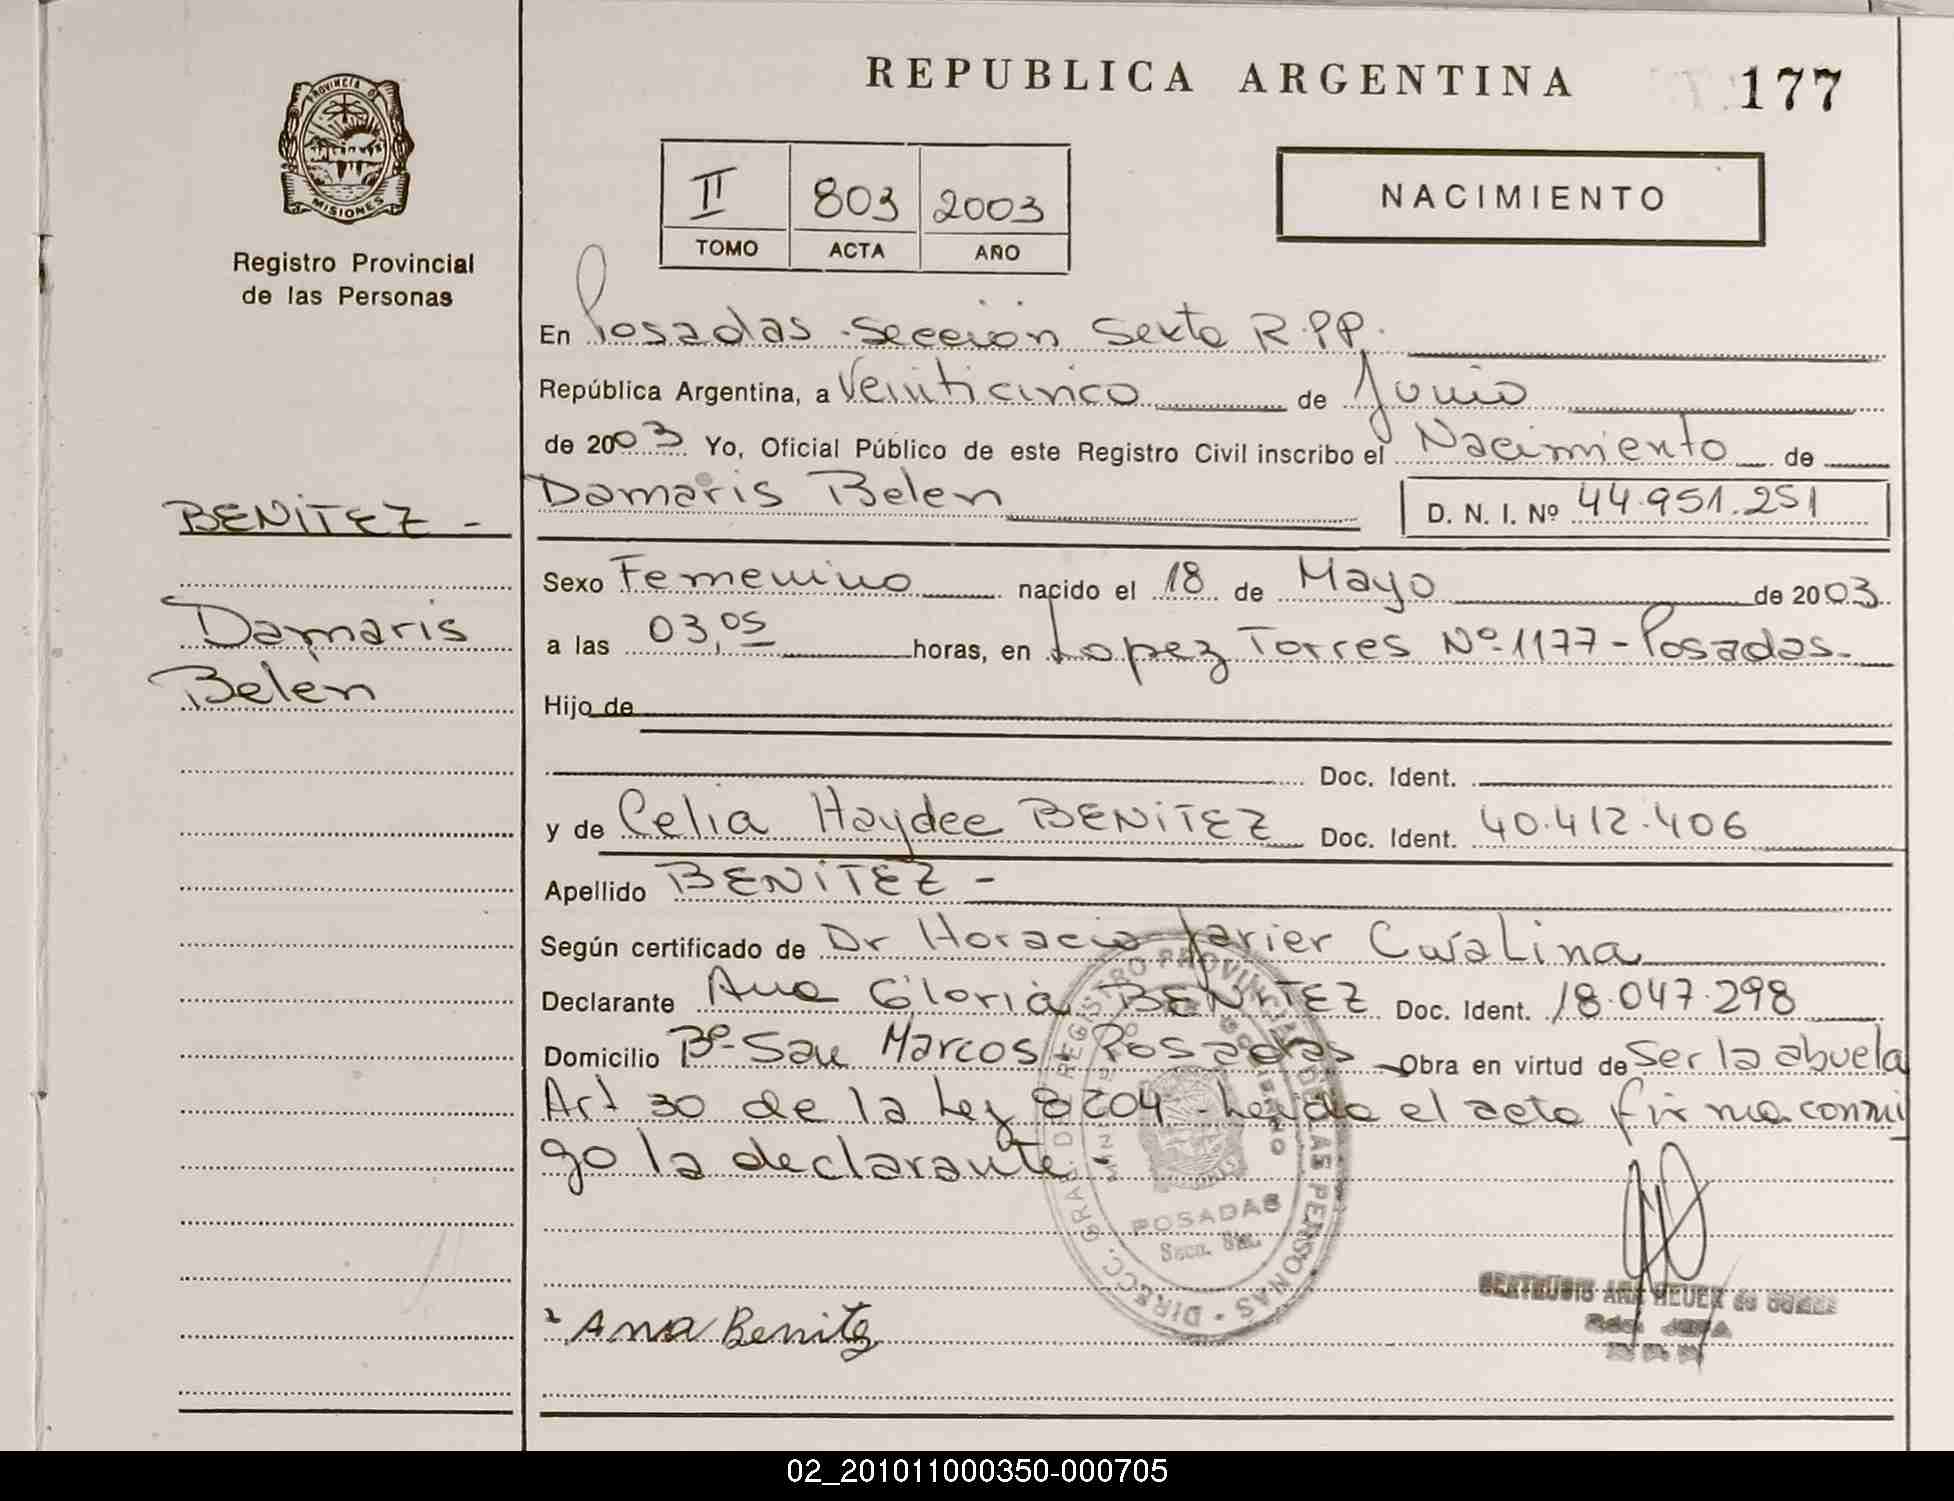 REPUBLICA ARGENTINA
177
PROVINCIA DE
MISIONES
Registro Provincial
de las Personas
II 803 2003
TOMO ACTA AÑO
NACIMIENTO
En Posadas - Sección Sexta R.P.P.
República Argentina, a Veinticinco de Junio
de 2003 Yo, Oficial Público de este Registro Civil inscribo el Nacimiento de
Damaris Belen D. N. I. Nº 44.951.251
BENITEZ -
Damaris
Belen
Sexo Femenino nacido el 18 de Mayo de 2003
a las 03,05 horas, en Lopez Torres Nº 1177 - Posadas -
Hijo de
Doc. Ident.
y de Celia Haydee BENITEZ Doc. Ident. 40.412.406
Apellido BENITEZ -
Según certificado de Dr Horacio Javier
Declarante Ana Gloria BENITEZ Doc. Ident. 18.047.298
Domicilio Bº San Marcos - Posadas - Obra en virtud de Ser la abuela
Art 30 de la Ley 8204 - Leida el acta firma conmi
go la declarante -
DIRECC. GRAL. DE REGISTRO PROVINCIAL DE LAS PERSONAS
POSADAS
Ana Benitez
02_201011000350-000705